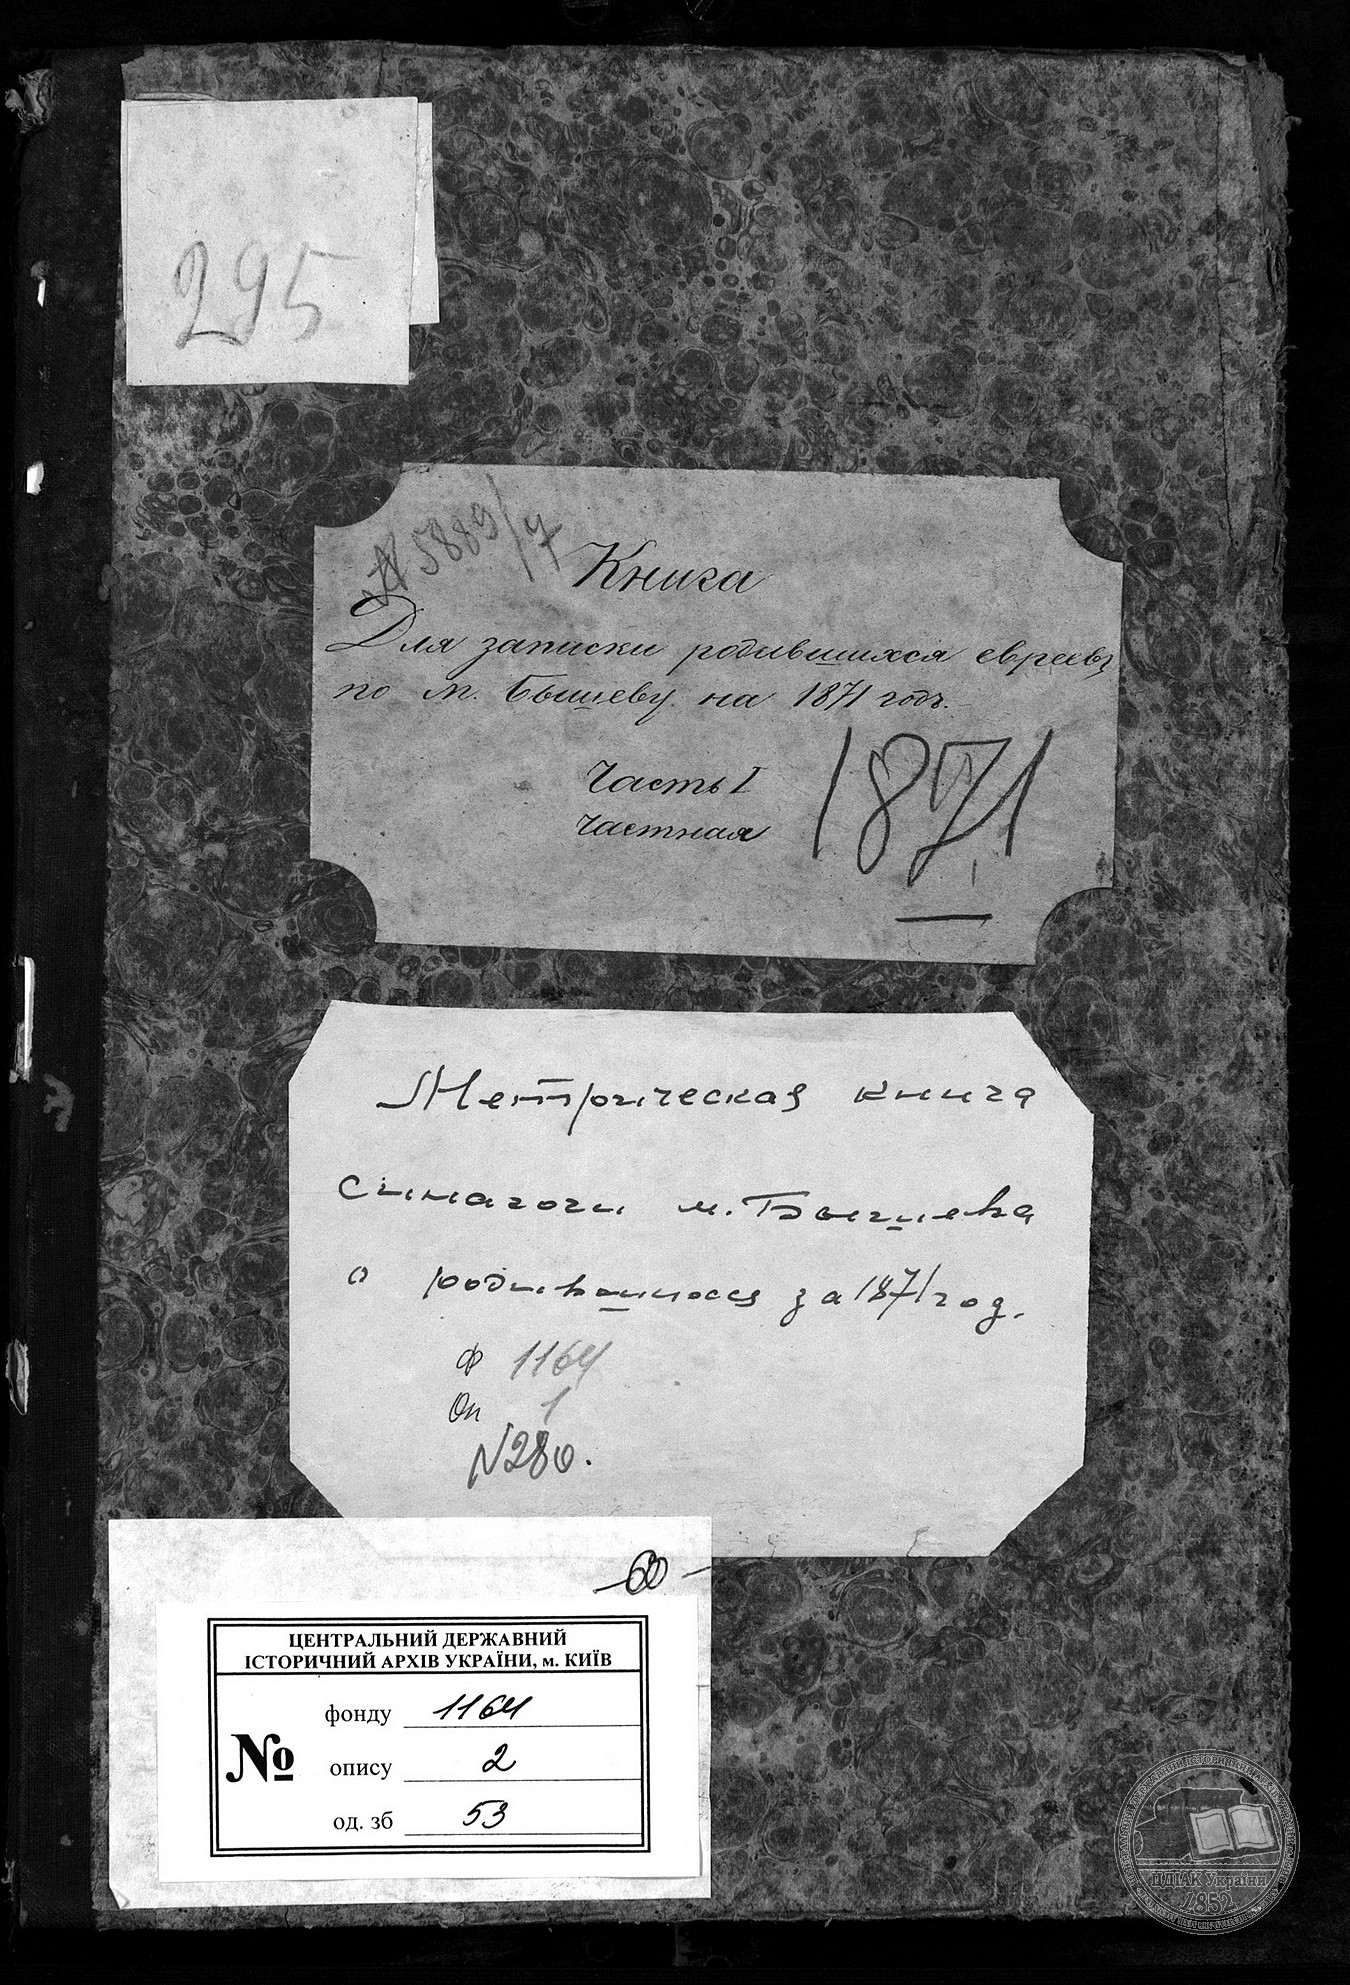 295
№ 5889/7
Книга
Для записки родившихся евреевъ
по м. Бышеву на 1871 годъ.
Часть I
частная
1871
Метрическая книга
синагоги м. Бышева
о родившихся за 1871 год.
Ф 1164
Оп 1
N 280.
60
ЦЕНТРАЛЬНИЙ ДЕРЖАВНИЙ
ІСТОРИЧНИЙ АРХІВ УКРАЇНИ, м. КИЇВ
№
фонду 1164
опису 2
од. зб 53
ЦДІАК України
1852